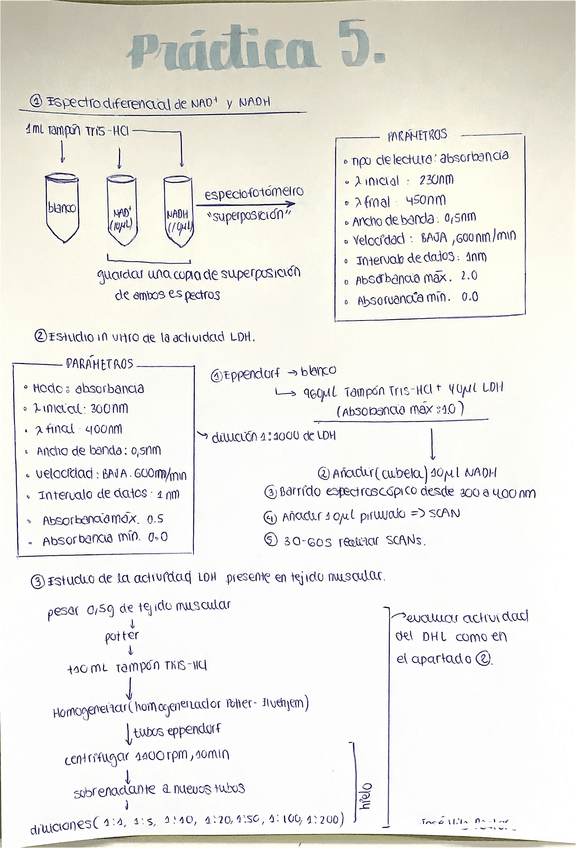 Práctica 5.
① Espectro diferencial de NAD⁺ y NADH
1mL Tampón TRIS-HCl
blanco
NAD⁺
(10µL)
NADH
(10µL)
espectofotómetro
"superposición"
guardar una copia de superposición
de ambos espectros
PARÁMETROS
• Tipo de lectura: absorbancia
• λ inicial : 230nm
• λ final : 450nm
• Ancho de banda: 0,5nm
• Velocidad : BAJA, 600nm/min
• Intervalo de datos: 1nm
• Absorbancia máx. 2.0
• Absorvancia mín. 0.0
② Estudio in vitro de la actividad LDH.
PARÁMETROS
• Modo: absorbancia
• λ inicial: 300nm
• λ final : 400nm
• Ancho de banda: 0,5nm
• Velocidad: BAJA. 600nm/min
• Intervalo de datos : 1nm
• Absorbancia máx. 0.5
- Absorbancia mín. 0.0
① Eppendorf → blanco
960µl Tampón TRIS-HCl + 40µl LDH
(Absorbancia máx: 1.0)
→ dilución 1:1000 de LDH
② Añadir (cubeta) 10µl NADH
③ Barrido espectroscópico desde 300 a 400nm
④ Añadir 10µl piruvato => SCAN
⑤ 30-60s realizar SCANs.
③ Estudio de la actividad LDH presente en tejido muscular.
pesar 0,5g de tejido muscular
potter
+10mL Tampón TRIS-HCl
Homogeneizar (homogeneizador Potter-Elvehjem)
tubos eppendorf
centrifugar 1100rpm, 10min
sobrenadante a nuevos tubos
diluciones (1:1, 1:5, 1:10, 1:20, 1:50, 1:100, 1:200)
hielo
evaluar actividad
del DHL como en
el apartado ②.